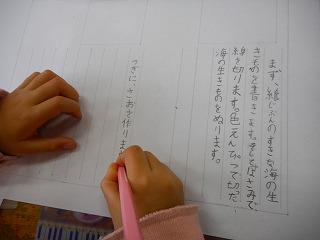 まず、絵じぶんのすきな海の生
きものを書きます。そしてはさみで、
線を切ります。色えんぴつで切った
海の生きものをぬります。
つぎに、さおを作ります